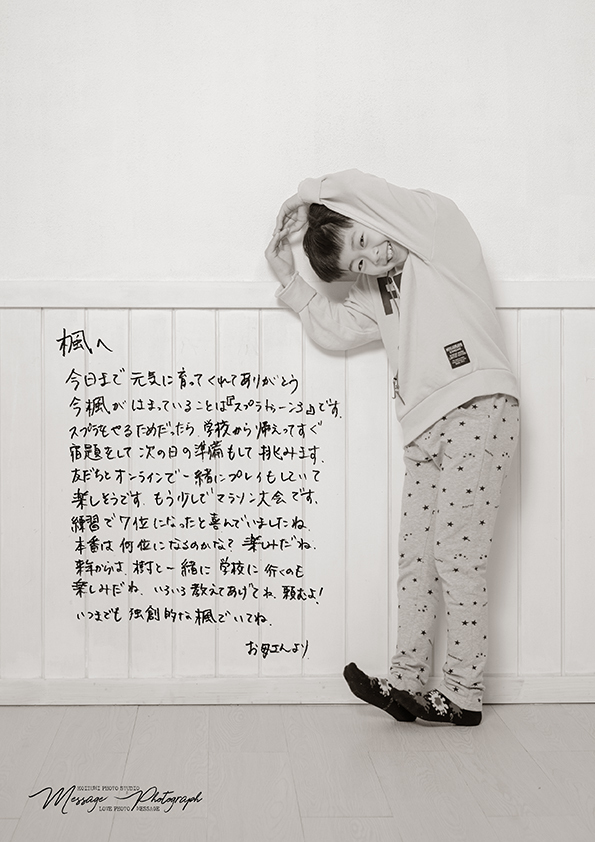 楓へ
今日まで元気に育ってくれてありがとう
今楓がはまっていることは『スプラトゥーン3』です。
スプラをやるためだったら、学校から帰ってすぐ
宿題をして次の日の準備もして挑みます。
友だちとオンラインで一緒にプレイもしていて
楽しそうです。もう少しでマラソン大会です。
練習で7位になったと喜んでいましたね。
本番は何位になるのかな？楽しみだね。
来年からは樹と一緒に学校に行くのも
楽しみだね。いろいろ教えてあげてね。頼むよ！
いつまでも独創的な楓でいてね。
お母さんより
KOIZUMI PHOTO STUDIO
Message Photograph
LOVE PHOTO MESSAGE